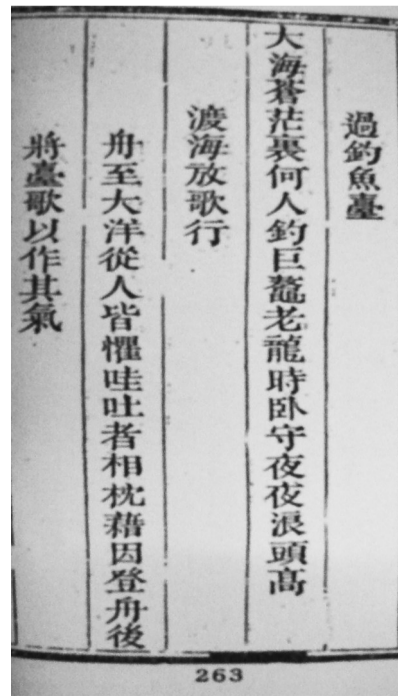 過釣魚臺
大海蒼茫裏何人釣巨鼇老龍時卧守夜夜浪頭高
渡海放歌行
舟至大洋從人皆懼哇吐者相枕藉因登舟後
將臺歌以作其氣
263